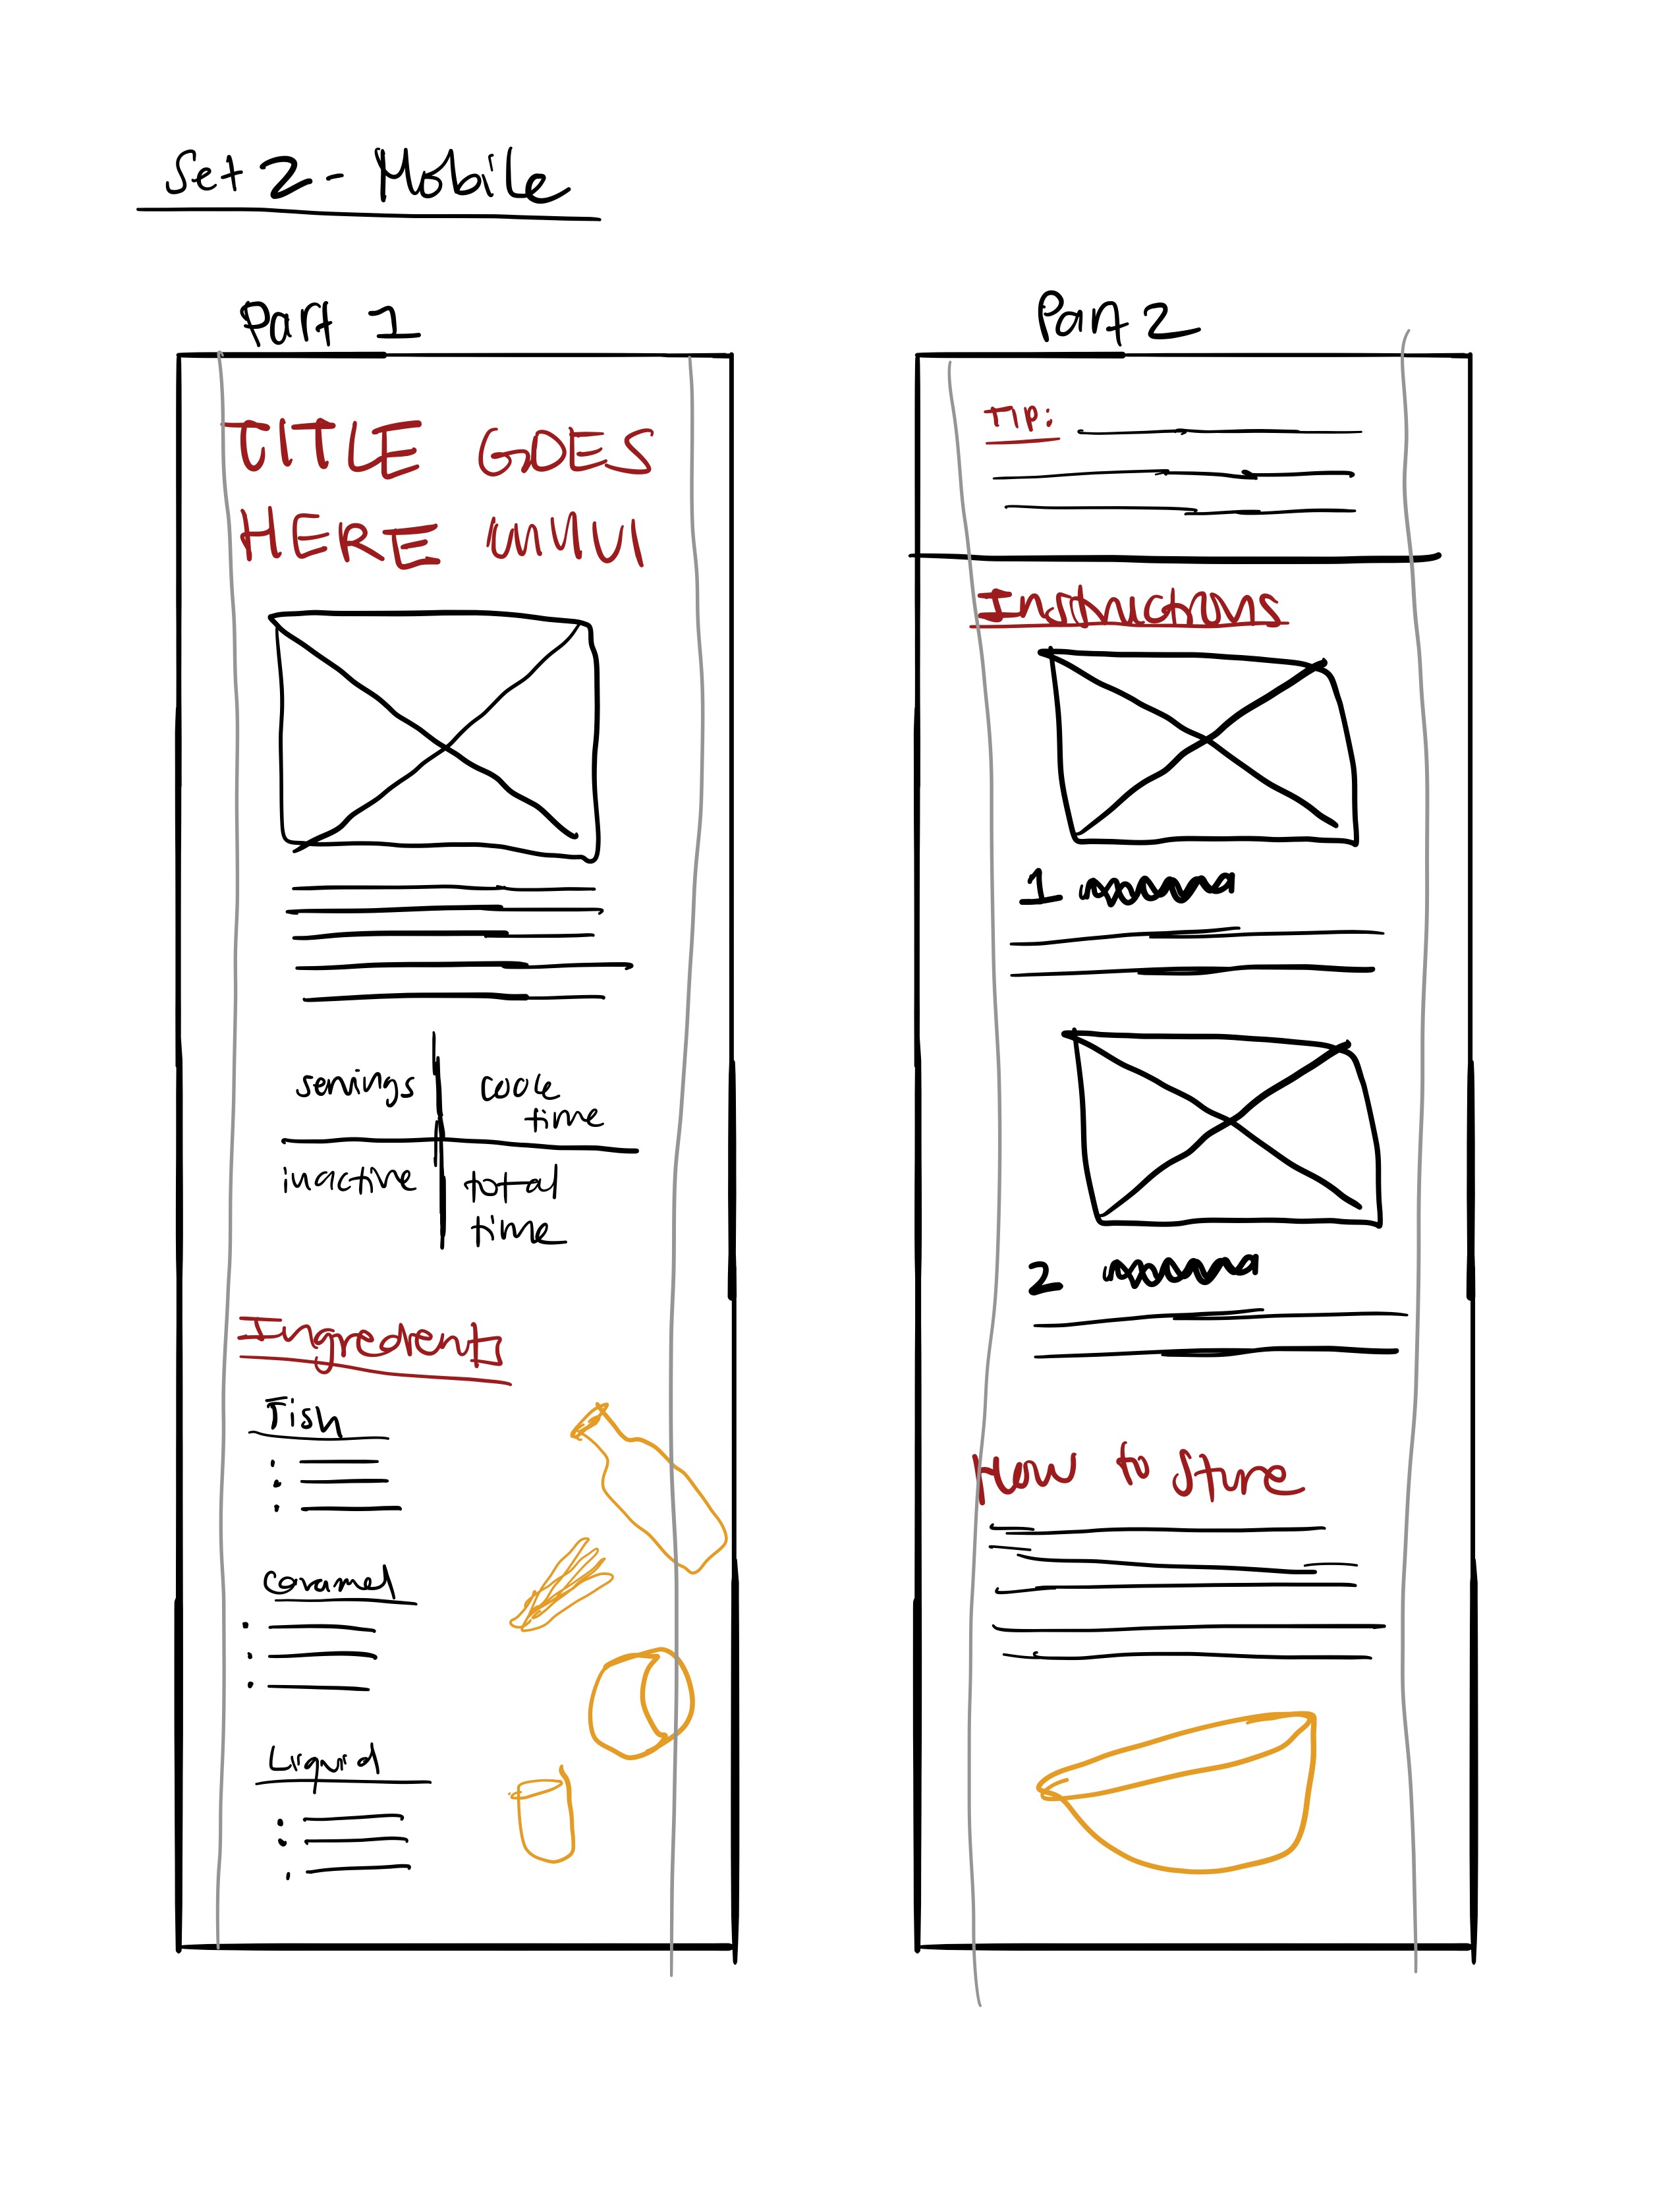 Set 2 - Mobile
Part 1
TITLE GOES
HERE
servings
cook
time
inactive
total
time
Ingredients
Fish
Caramel
Liquid
Part 2
TIP:
Instructions
1
2
How to Store